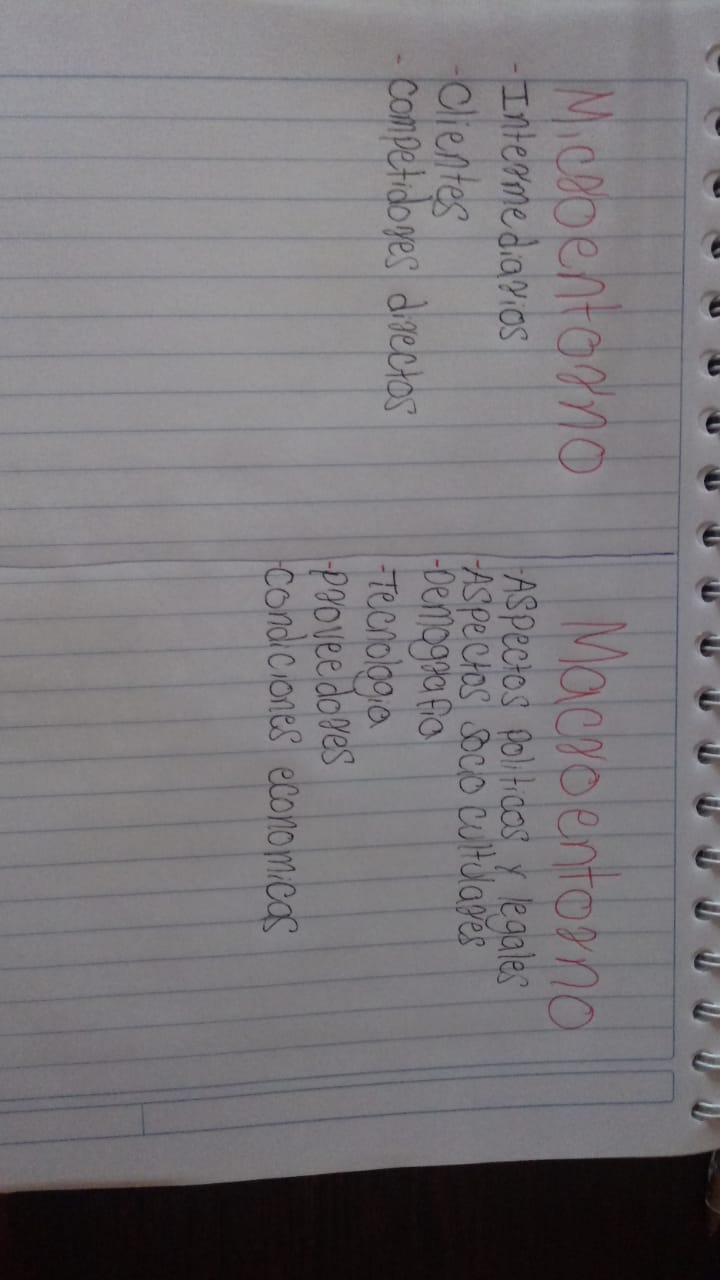 Microentorno
- Intermediarios
- Clientes
- competidores directos
Macroentorno
- Aspectos politicos y legales
- Aspectos socio culturales
- Demografia
- Tecnologia
- proveedores
- condiciones economicas